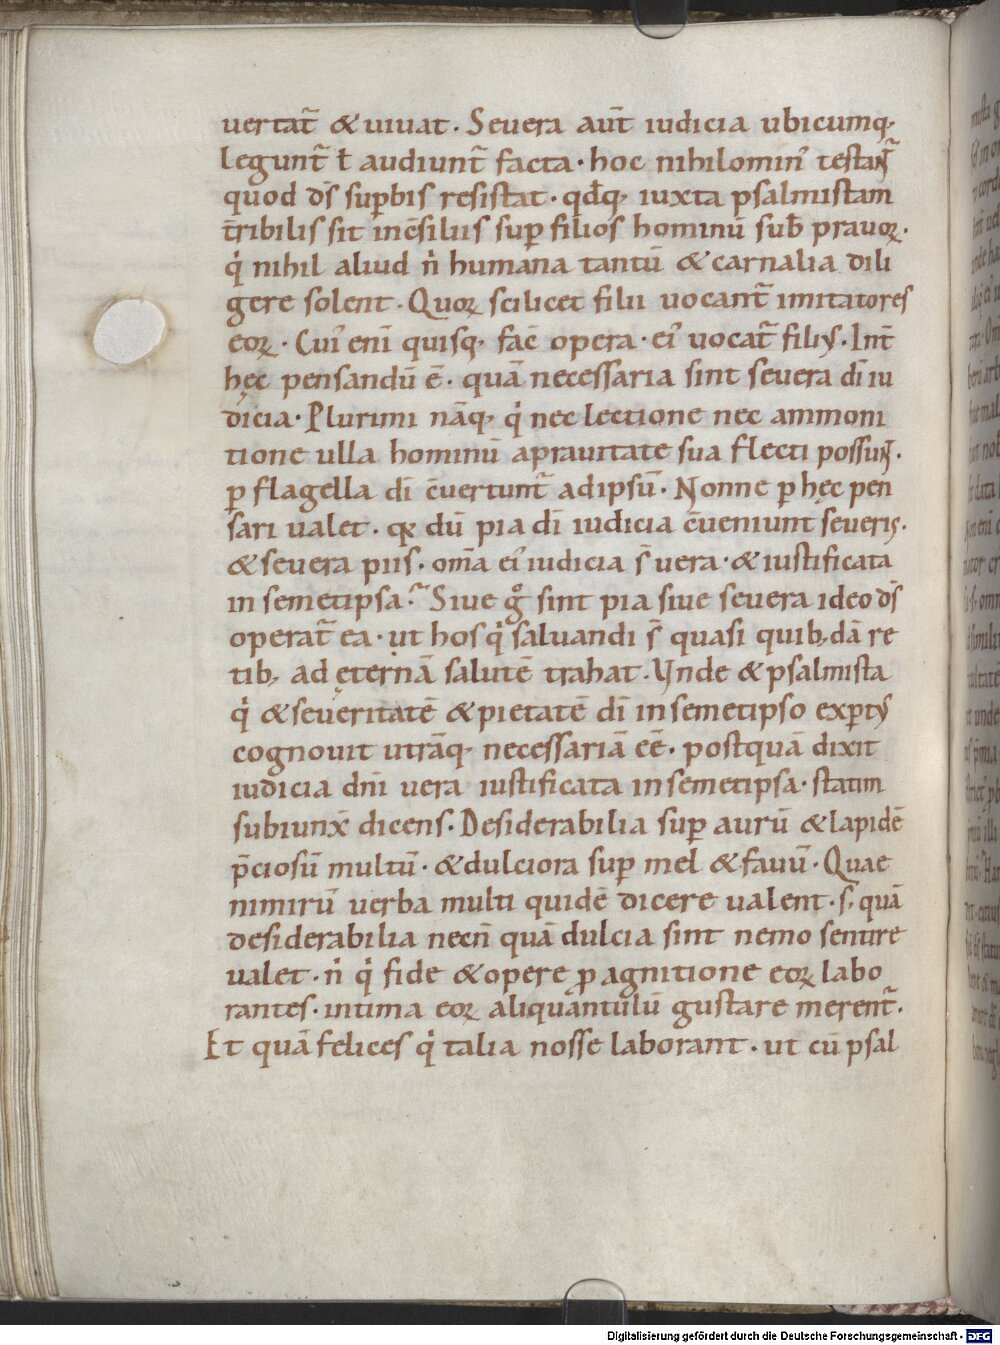 vertat̄ & uiuat. Seuera aut̄ iudicia ubicumq;
legunt̄ ł audiunt̄ facta. hoc nihilomin᾽ testant̄
quod dS̄ suꝑbis resistat. qđq; iuxta psalmistam
t̄ribilis sit in c̄siliis suꝑ filios hominū. sub̄ prauoꝝ.
q̇ nihil aliud n̄ humana tantū & carnalia dili
gere solent. Quoꝝ scilicet filii uocant̄ imitatores
eoꝝ. Cui᾽ eni quisq; fac̄ opera. ei᾽ uocat̄ filius. Int̄
hęc pensandū ē. quā necessaria sint seuera dī iu
dicia. Plurimi nāq; q̇ nec lectione nec ammoni
tione ulla hominū aprauitate sua flecti possunt.
ꝑ flagella dī c̄uertunt̄ adipsū. Nonne ꝑ hęc pen
sari ualet. qꝫ dū pia dī iudicia c̄ueniunt seueris.
& seuera piis. om̄a ei᾽ iudicia s̄ uera. & iustificata
in semetipsa. Siue gͦ sint pia siue seuera ideo dS̄
operat̄ ea. ut hos q̇ saluandi s̄ quasi quib; dā re
tib; ad ęternā salutē trahat. Unde & psalmista
q̇ & seueritatē & pietatē dī insemetipso exꝑtus
cognouit utrāq; necessariā eē. postquā dixit
iudicia dn̄i uera iustificata insemetipsa. statim
subiunx̄ dicens. Desiderabilia suꝑ aurū & lapidē
p̄ciosū multū. & dulciora suꝑ mel & fauū. Quae
nimirū uerba multi quidē dicere ualent. s; quā
desiderabilia necn̄ quā dulcia sint nemo sentire
ualet. n̄ q̇ fide & opere ꝓ agnitione eoꝝ labo
rantes. intima eoꝝ aliquantulū gustare merent̄.
Et quā felices q̇ talia nosse laborant. ut cū psal
Digitalisierung gefördert durch die Deutsche Forschungsgemeinschaft - DFG